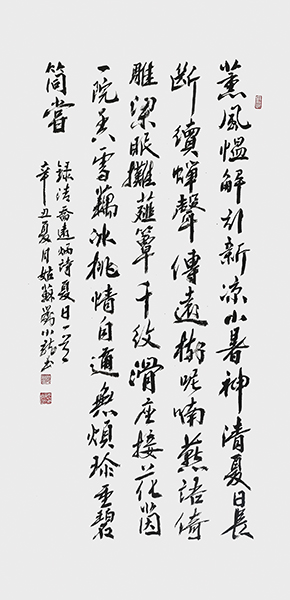 薰風愠解引新凉小暑神清夏日長
斷續蟬聲傳遠樹呢喃燕語倚
雕梁眠攤薤簟千紋滑座接花茵
一院香雪藕冰桃情自適無煩珍重碧
筒嘗
録清喬遠炳詩夏日一首
辛丑夏月姑蘇小龍書